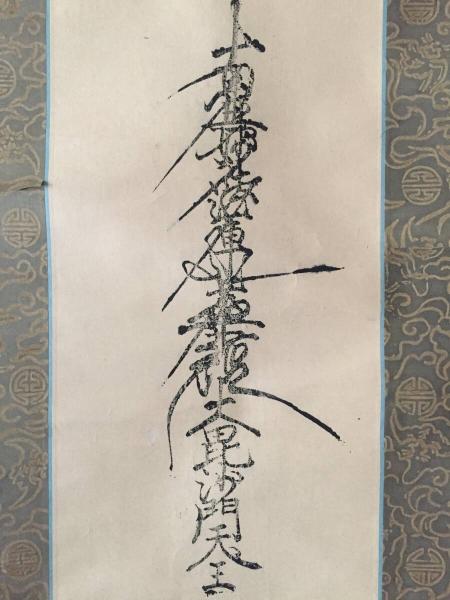 南無妙法蓮華經大毘沙門天王